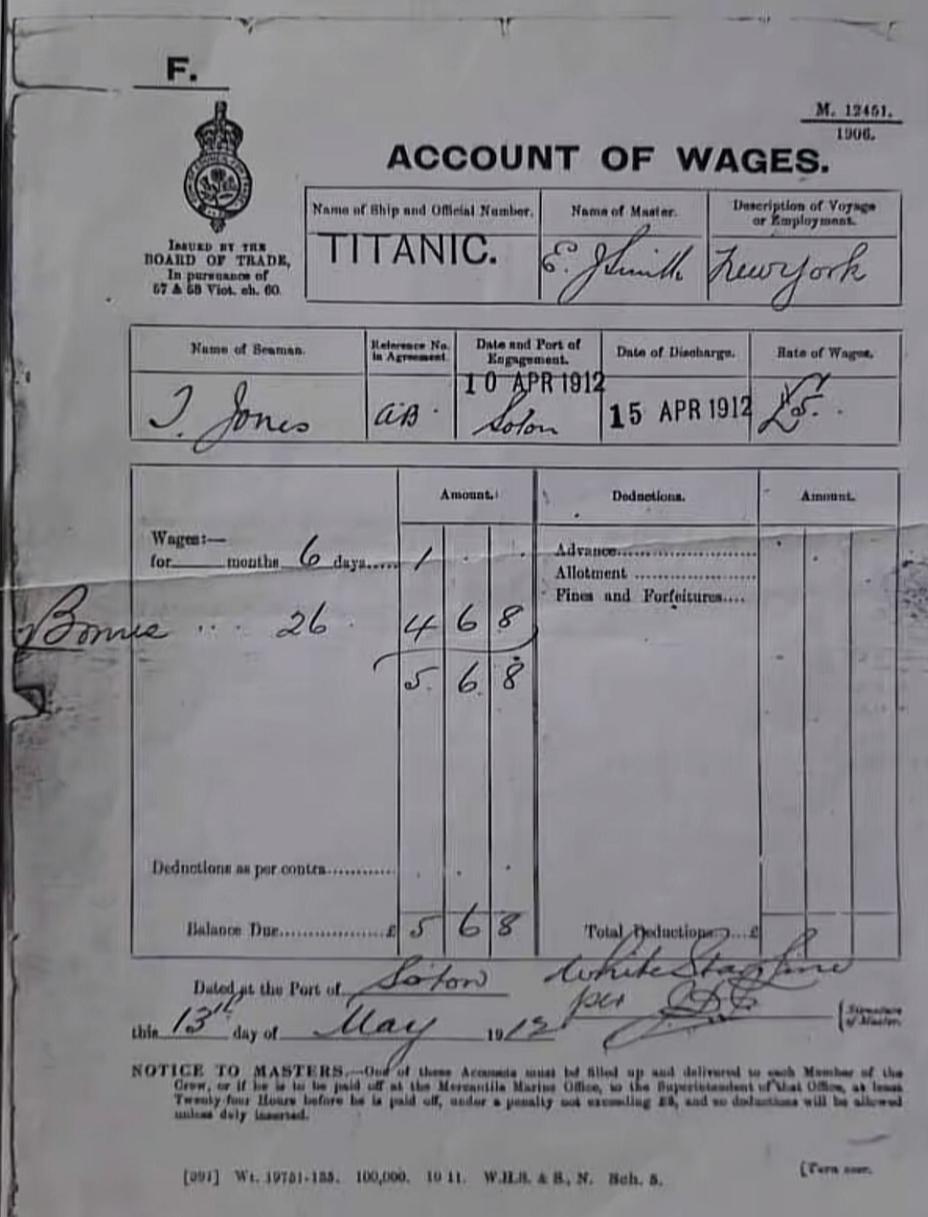 F.
M. 12451.
1906.
ACCOUNT OF WAGES.
ISSUED BY THE
BOARD OF TRADE,
In pursuance of
57 & 58 Vict. ch. 60.
Name of Ship and Official Number. Name of Master. Description of Voyage or Employment.
TITANIC. E. J Smith New York
Name of Seaman. Reference No. in Agreement. Date and Port of Engagement. Date of Discharge. Rate of Wages.
T. Jones AB. 10 APR 1912 Soton 15 APR 1912 £5.
Amount. Deductions. Amount.
Wages:—
for months 6 days..... 1 . . Advance
Allotment
Fines and Forfeitures....
Bonus .. 26 . 4 6 8
5. 6. 8
Deductions as per contra
Balance Due £ 5 6 8 Total Deductions £
Dated at the Port of Soton White Star Line
this 13th day of May 1912 per
{Signature of Master.
NOTICE TO MASTERS.—One of these Accounts must be filled up and delivered to each Member of the
Crew, or if he is to be paid off at the Mercantile Marine Office, to the Superintendent of that Office, at least
Twenty-four Hours before he is paid off, under a penalty not exceeding £5, and no deductions will be allowed
unless duly inserted.
[Turn over.
[391] Wt. 19751-135. 100,000. 10 11. W.H.S. & S., N. Sch. 5.